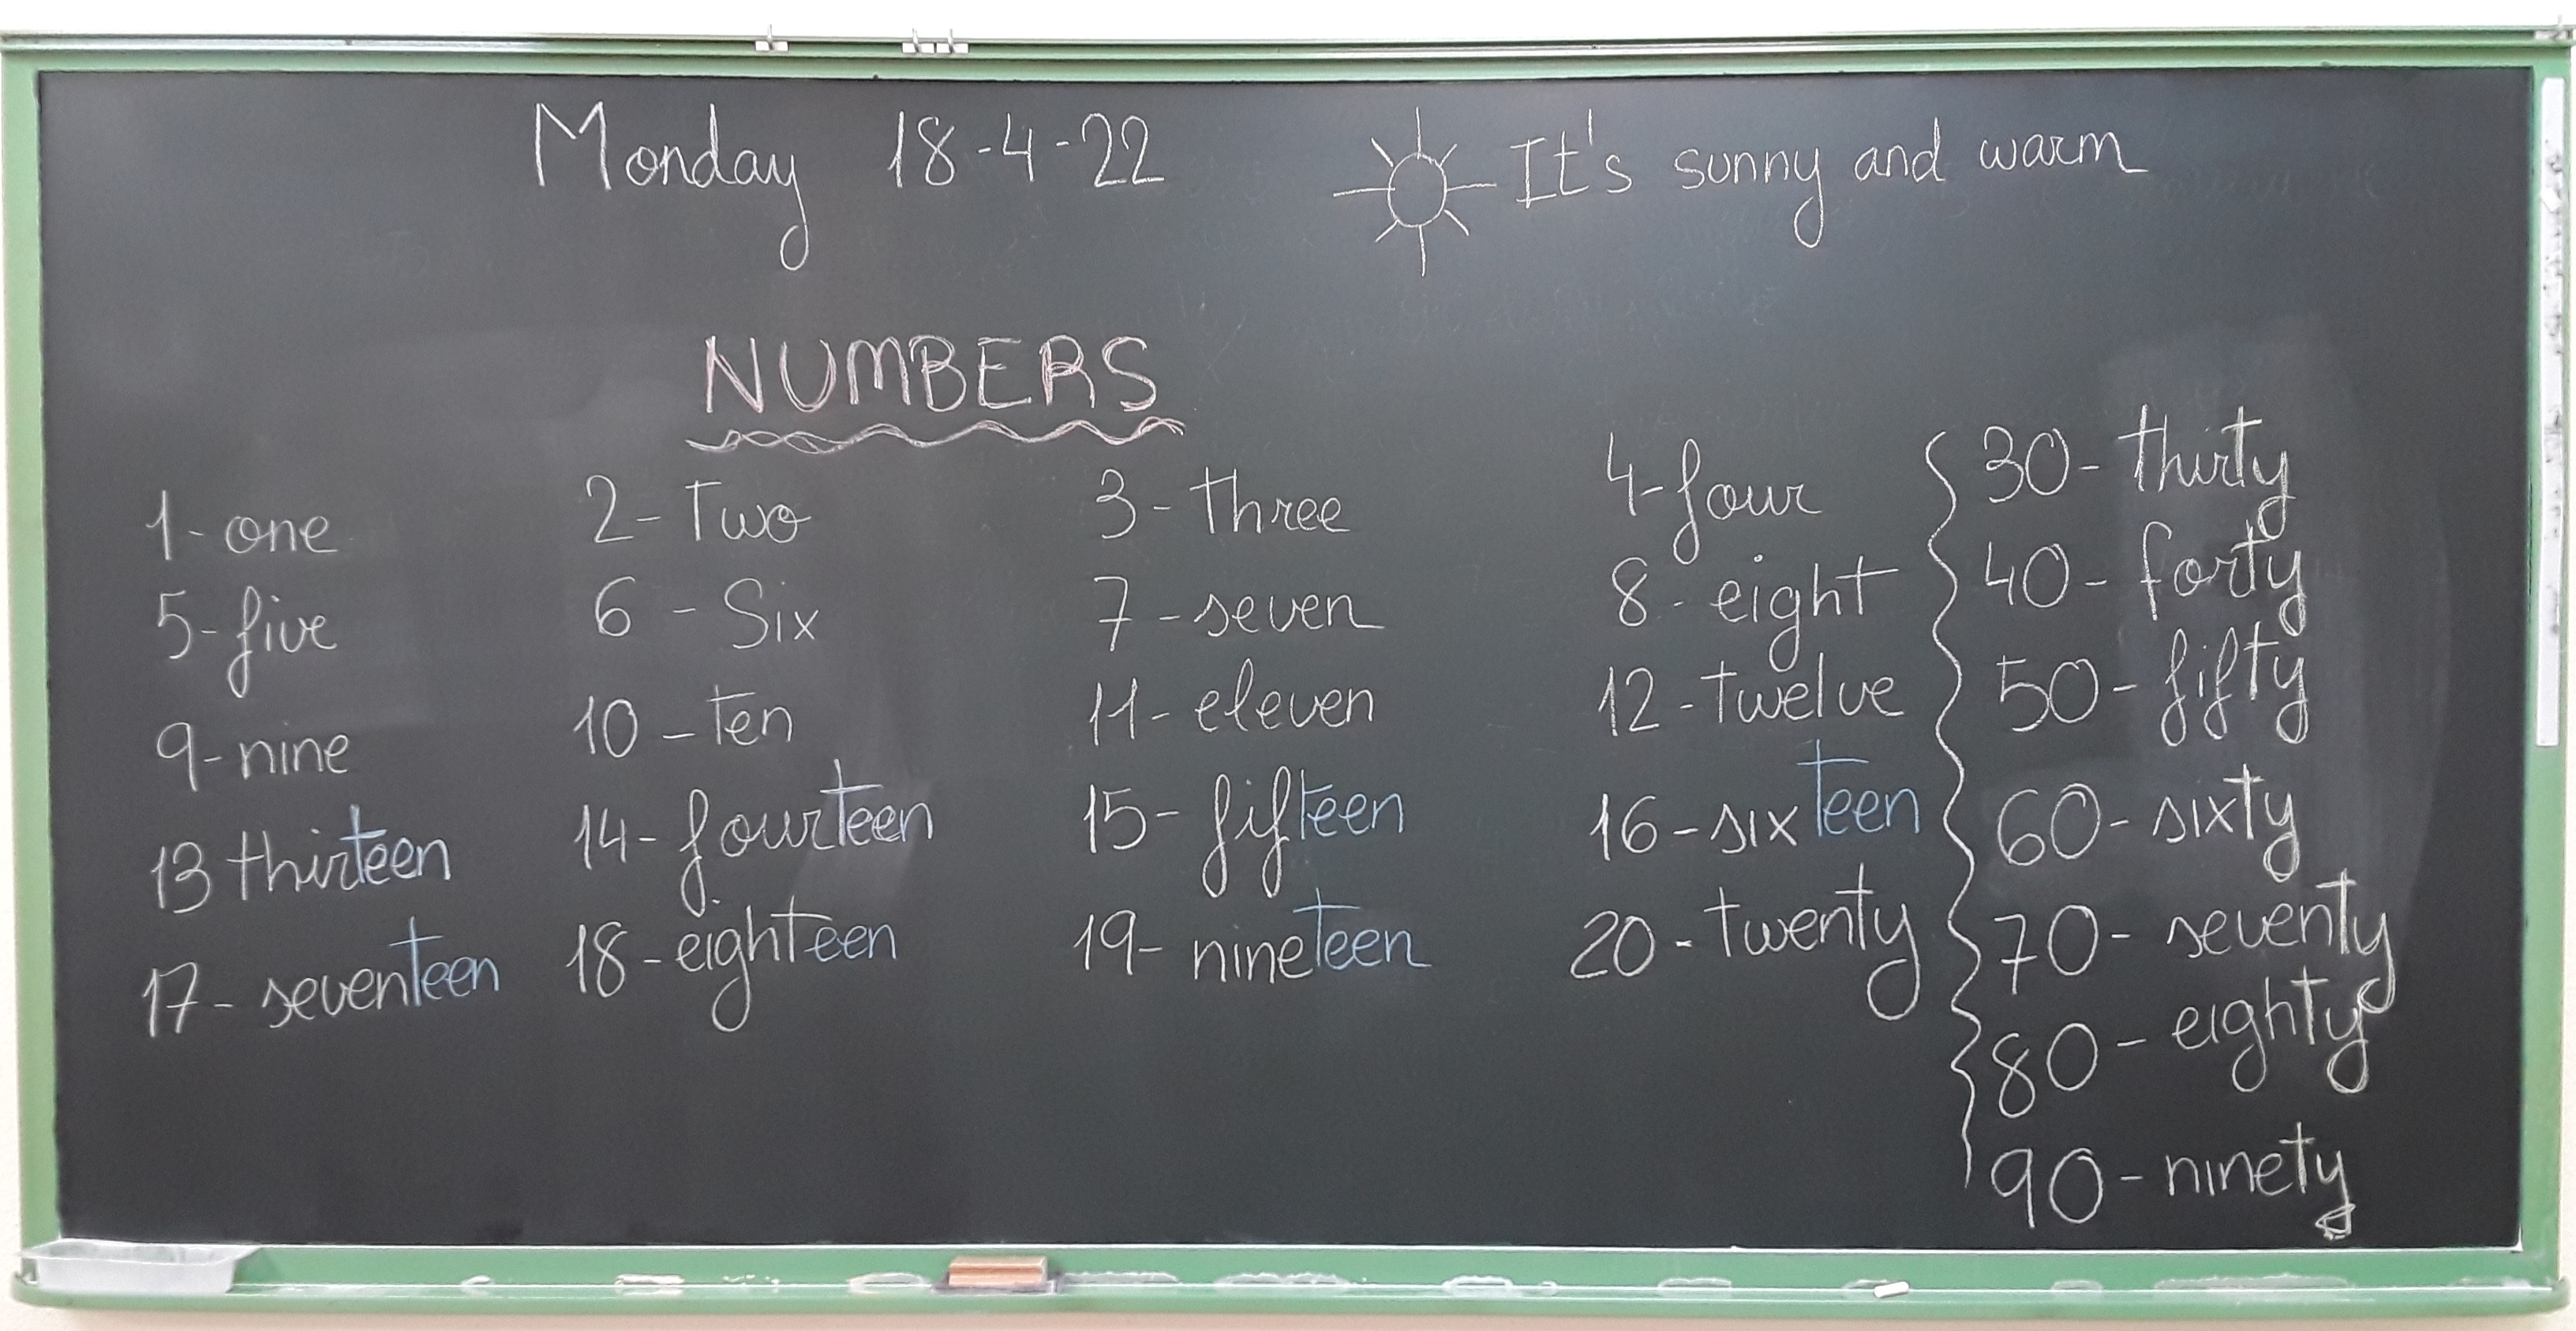 Monday 18-4-22 It's sunny and warm
NUMBERS
1- one 2- Two 3- three 4- four
5- five 6 - Six 7- seven 8- eight
9- nine 10 - Ten 11- eleven 12- twelve
13 thirteen 14- fourteen 15- fifteen 16- sixteen
17- seventeen 18- eighteen 19- nineteen 20- twenty
30- thirty
40- forty
50- fifty
60- sixty
70- seventy
80- eighty
90- ninety